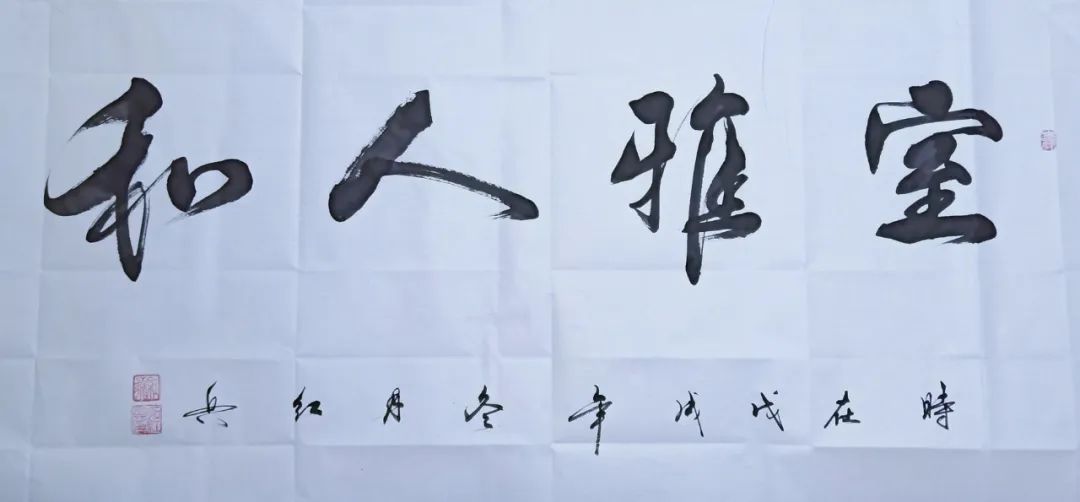 室雅人和
時在戊戌年冬月红兵